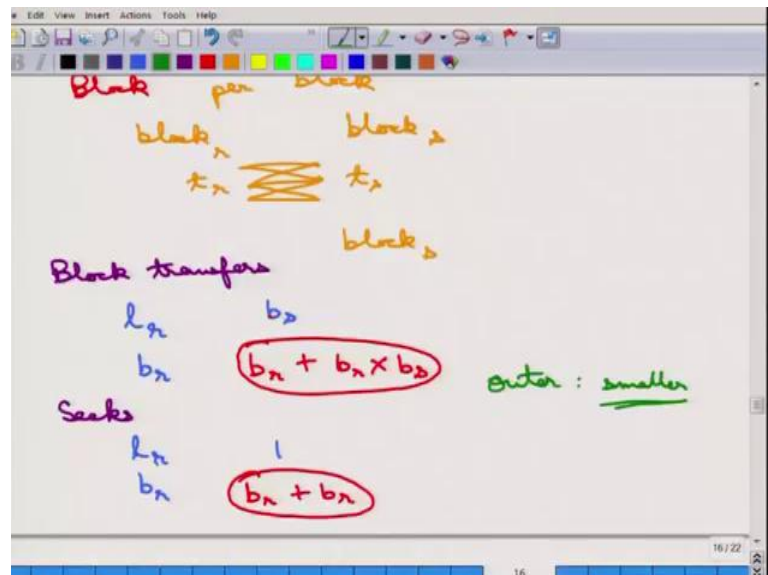 Edit View Insert Actions Tools Help
Block per block
block_r block_s
t_r t_s
block_s
Block transfers
l_r b_s
b_r b_r + b_r × b_s outer : smaller
Seeks
l_r 1
b_r b_r + b_r
16 / 22
16